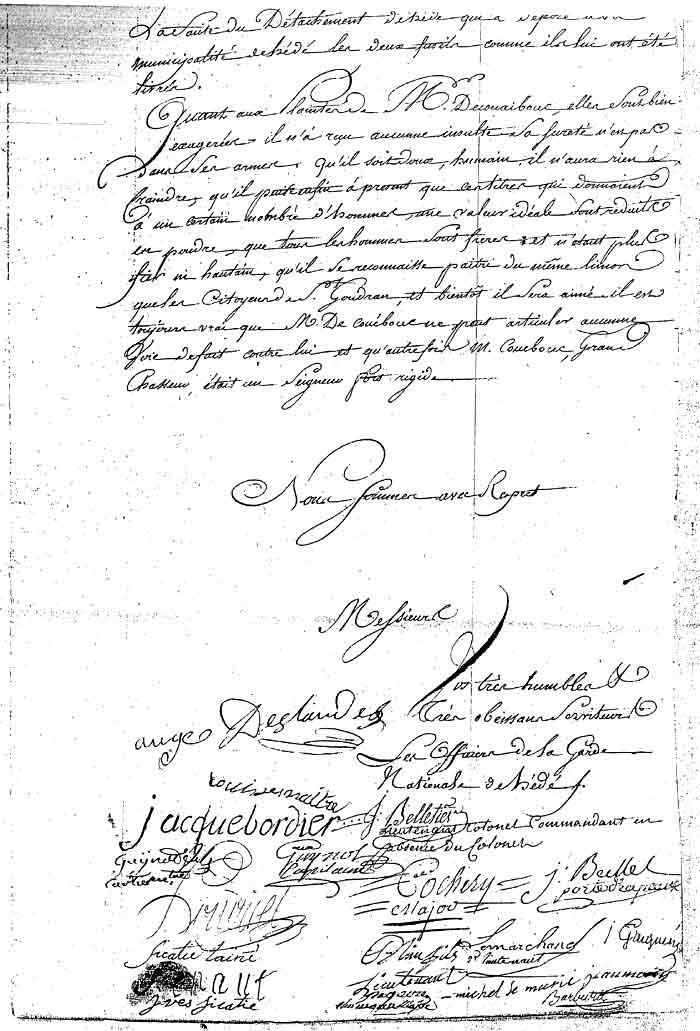 La Suite du Détachement de hédé qui a déposé a la
municipalité de hédé les deux fusils comme ils lui ont été
livrés.
Quant aux plaintes de M. Decouaibouc, elles sont bien
exaugerées, il n'a reçue aucunne insulte Sa sureté n'est pas
dans ses armes, qu'il soit doux, humain, il n'aura rien à
Craindre, qu'il pense enfin à present que ces titres qui donnaient
à un certain nombre d'hommes une valeur idéale sont réduits
en poudre, que tous les hommes sont freres et n'étant plus
fier ni hautain, qu'il se reconnaisse paitri du même limon
que les Citoyens de St. Goudran, et bientôt il sera aimé. il est
toujours vrai que M. De Couëbouc ne peut articuler aucunne
Voie de fait contre lui et qu'autrefois M. Couebouc, Grand
Chasseur, était un Seigneur fort rigide
Nous sommes avec Respect
Messieurs
Vos très humbles &
Très obéissans Serviteurs
Les Officiers de la Garde
Nationale de hédé
ange Deslandes
Louis lemaitre
jacquebordier
J. Belletier
Lieutenant Colonel Commandant en
l'absence du Colonel
Guynot
Capitaine
Cochery
Major
J. Bellet
porte Drapeau
Sicatie lainé
Lemarchand
Lieutenant
michel
yves Sicatie